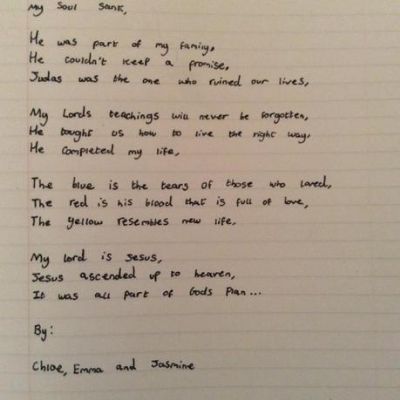 My Soul Sank,
He was part of my family,
He couldn't keep a promise,
Judas was the one who ruined our lives,
My Lords teachings will never be forgotten,
He tought us how to live the right way,
He completed my life,
The blue is the tears of those who loved,
The red is his blood that is full of love,
The yellow resembles new life.
My lord is Jesus,
Jesus ascended up to heaven,
It was all part of Gods Plan...
By:
Chloe, Emma and Jasmine